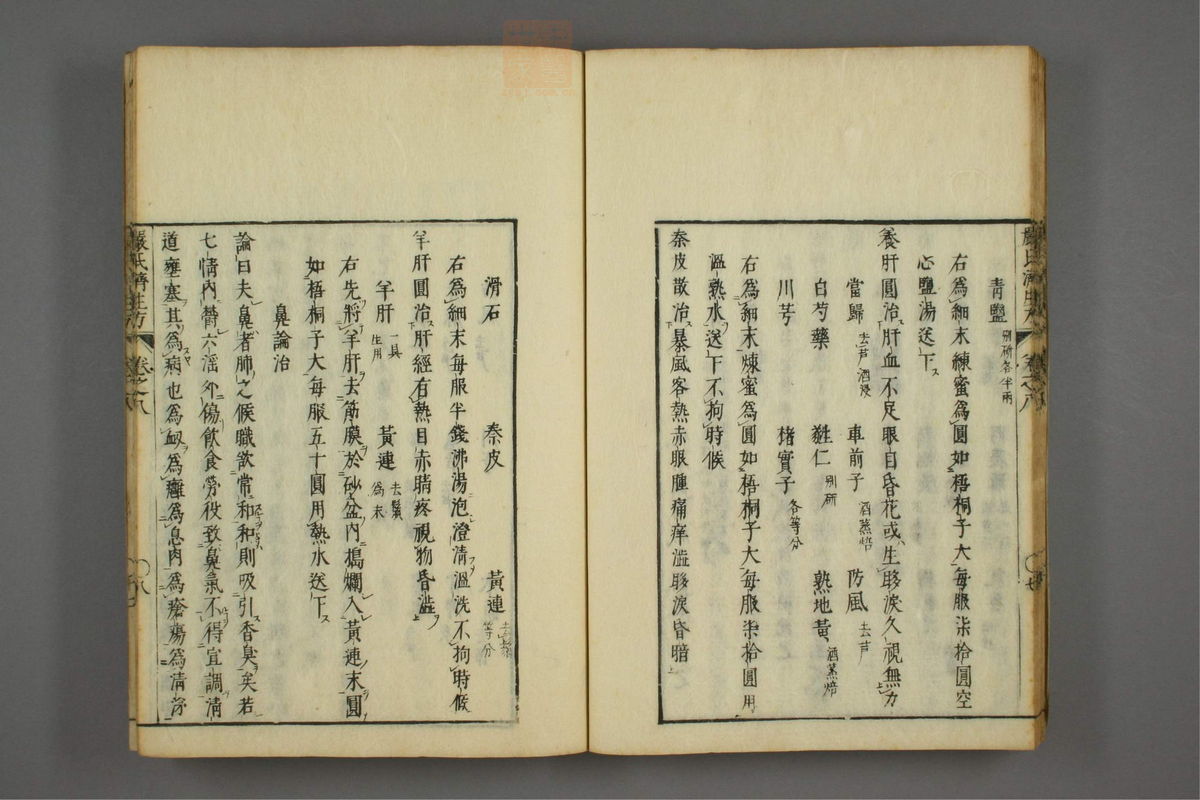 青鹽 別研各半兩
右爲細末練蜜爲圓如梧桐子大每服柒拾圓空
心鹽湯送下
養肝圓治肝血不足眼目昏花或生眵淚久視無力
當歸 去芦酒浸 車前子 酒蒸焙 防風 去芦
白芍藥 蕤仁 別研 熟地黃 酒蒸焙
川芎 楮實子 各等分
右爲細末煉蜜爲圓如梧桐子大每服柒拾圓用
溫熱水送下不拘時候
秦皮散治暴風客熱赤眼腫痛痒澁眵淚昏暗
滑石 秦皮 黃連 去 等分
右爲細末每服半錢沸湯泡澄清溫洗不拘時候
羊肝圓治肝經有熱目赤睛疼視物昏澁
羊肝 一具生用 黃連 去鬚爲末
右先將羊肝去筋膜於砂盆內搗爛入黃連末圓
如梧桐子大每服五十圓用熱水送下
鼻論治
論曰夫鼻者肺之候職欲常和和則吸引香臭矣若
七情內欝六淫外傷飲食勞役致鼻氣不得宜調清
道壅塞其爲病也爲衂爲癰爲息肉爲瘡瘍爲清涕
嚴氏濟生方 卷之八